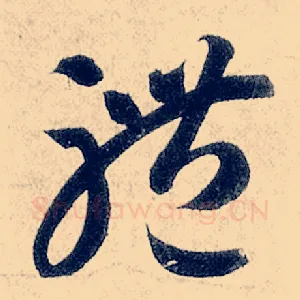 禮
Shufawang.CN